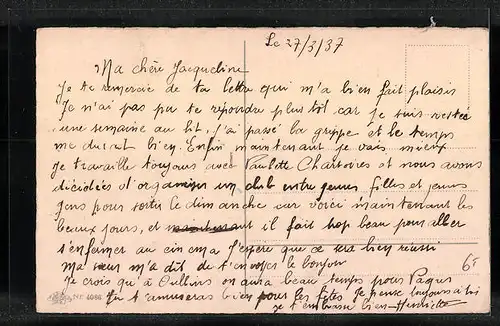 Le 27/3/37
Ma chère Jacqueline
Je te remercie de ta lettre qui m'a bien fait plaisir
Je n'ai pas pu te repondre plus tôt car je suis restée
une semaine au lit, j'ai passé la grippe et le temps
me durait bien. Enfin maintenant je vais mieux
Je travaille toujours avec Paulette et nous avons
décidées d'organiser un club entre jeunes filles et jeunes
gens pour sortir le dimanche car voici maintenant les
beaux jours, et il fait trop beau pour aller
s'enfermer au cinema J'espère que ce sera bien réussi
Ma sœur m'a dit de t'envoyer le bonjour
Je crois qu'à Oullins on aura beau temps pour Paques
Tu t'amuseras bien pour les fêtes Je pense toujours à toi
je t'embrasse bien Henriette
65
1098